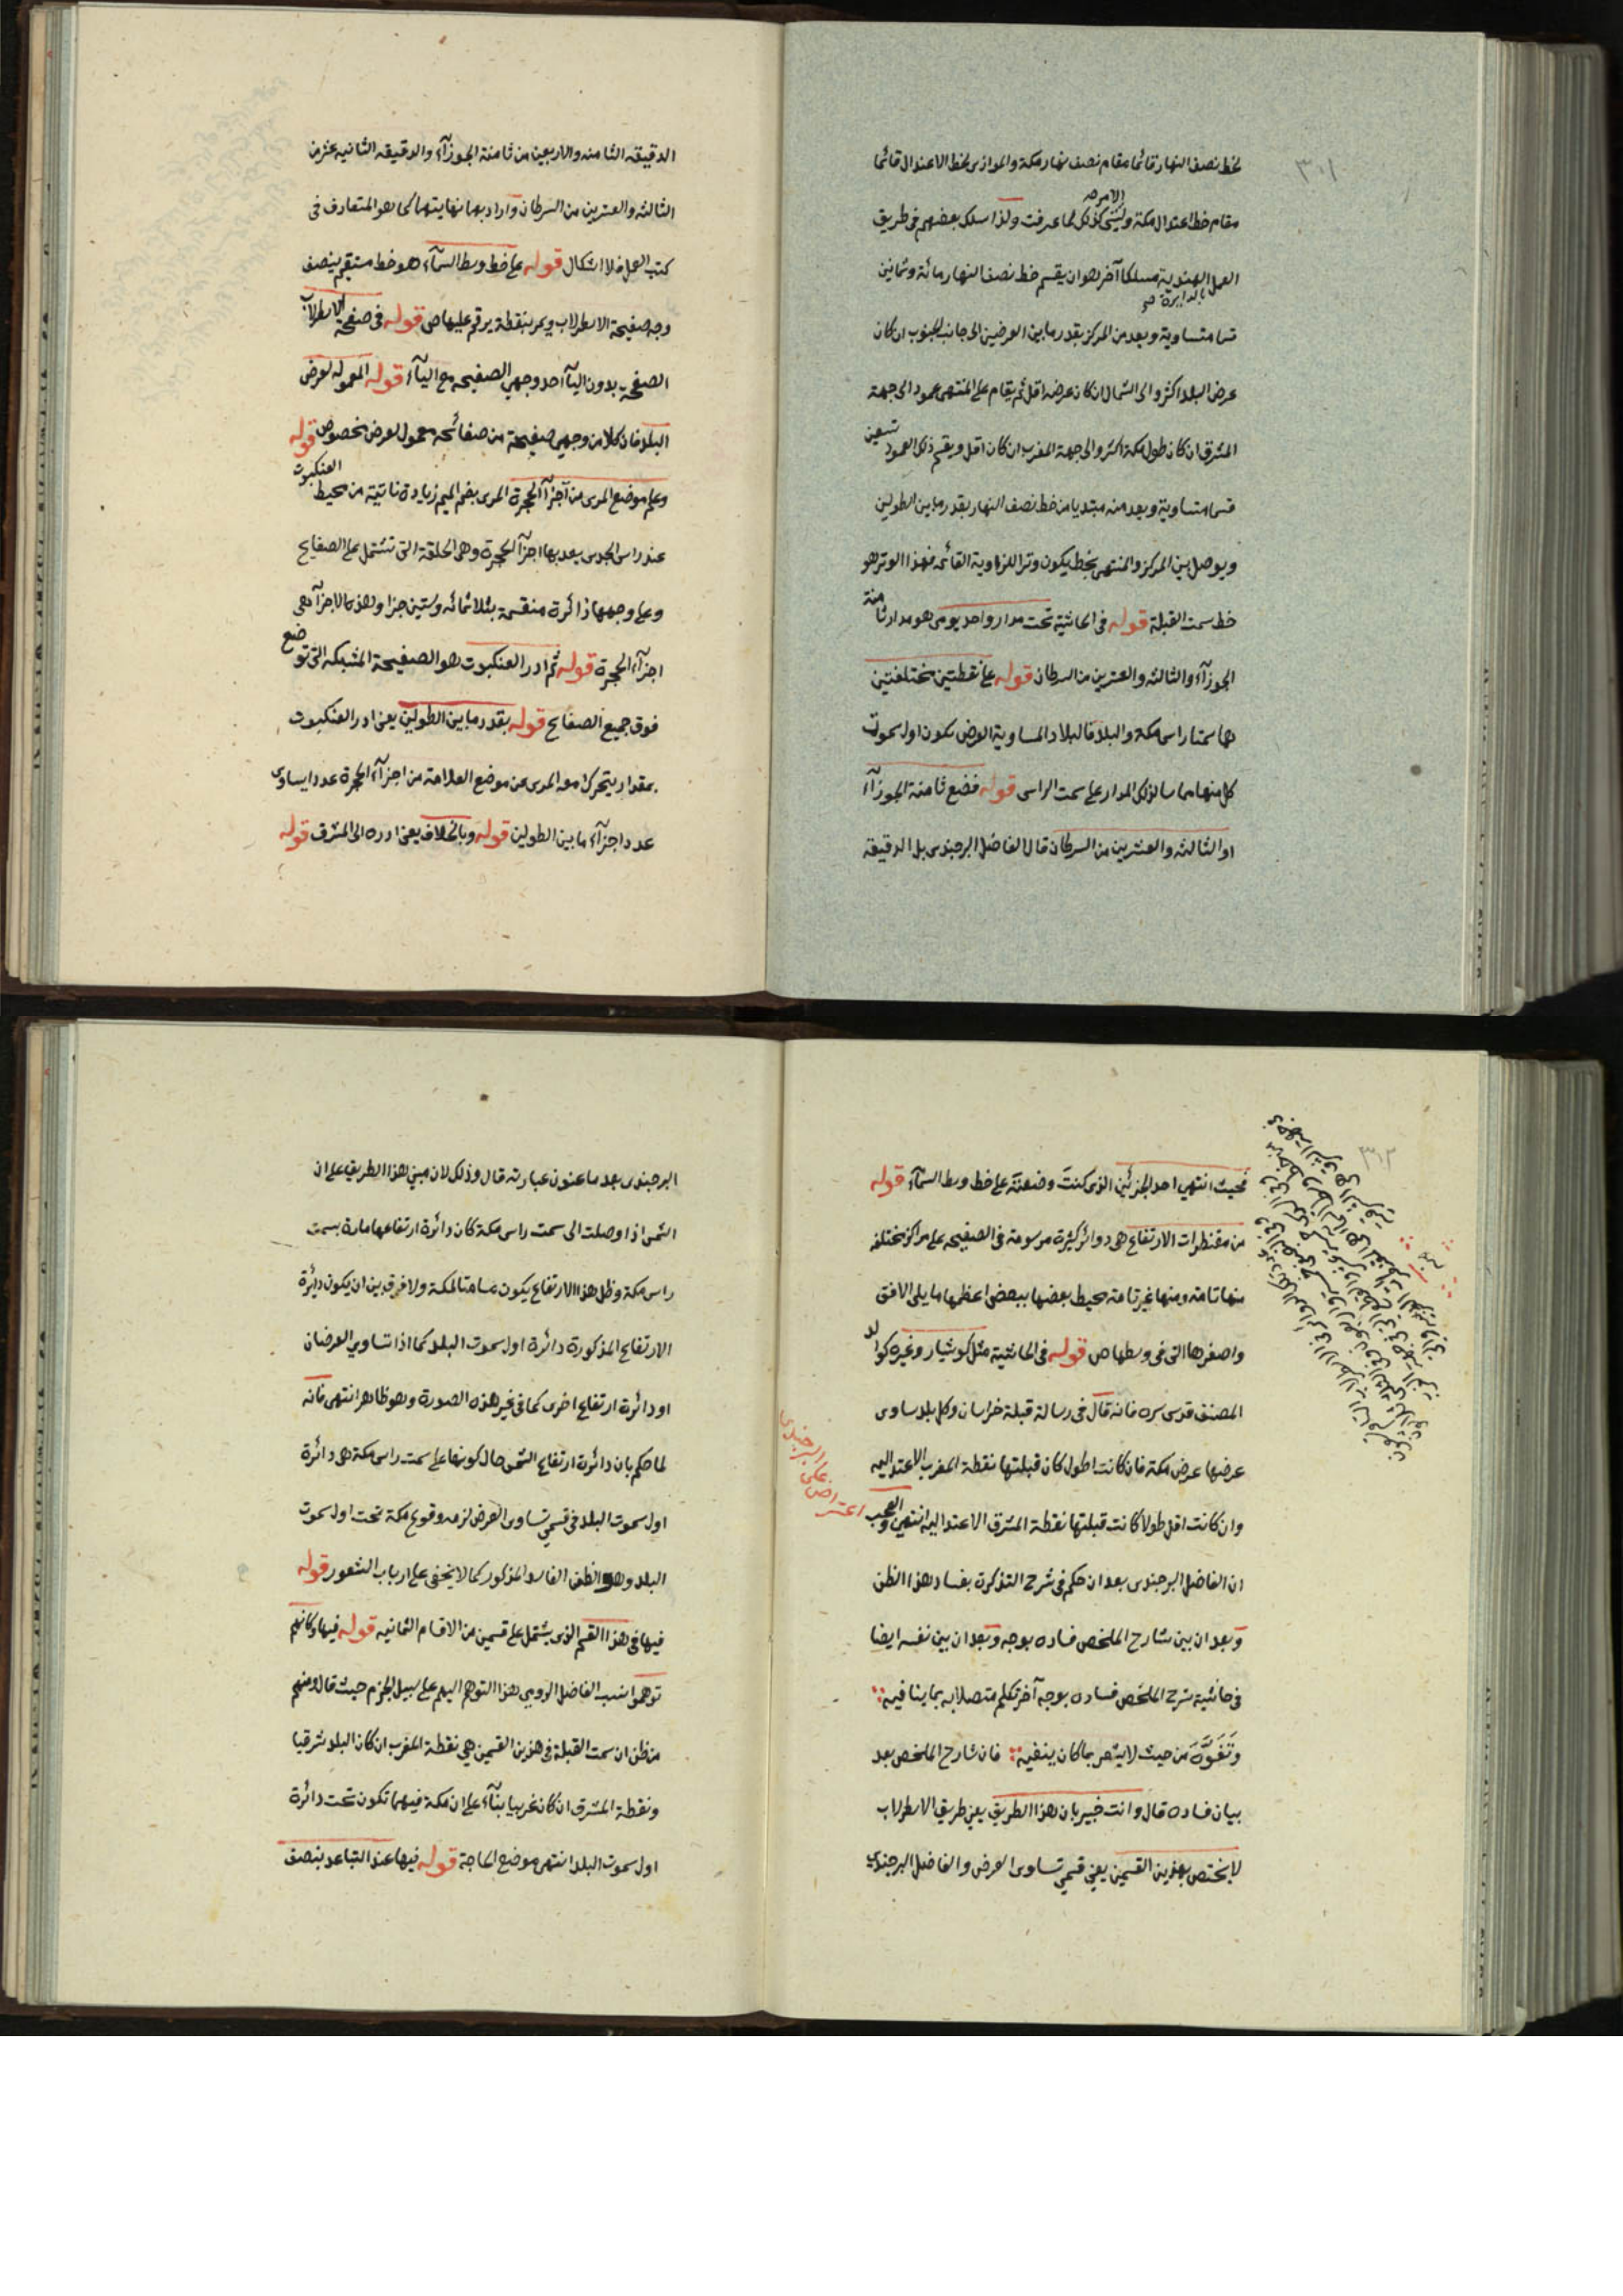 ٣٠١
لخط نصف النهار قائما مقام نصف نهار مكة والموازى لخط الاعتدال قائما
مقام خط اعتدال مكة وليس الامر كذلك لما عرفت ولذا سلك بعضهم فى طريق
العمل بالدايرة الهندية مسلكا آخر هو ان يقسم خط نصف النهار مائة وثمانين
قسما متساوية ويعد من المركز بقدر ما بين العرضين الى جانب الجنوب ان كان
عرض البلد اكثر والى الشمال ان كان عرضه اقل ثم يقام على المنتهى عمود الى جهة
المشرق ان كان طول مكة اكثر والى جهة المغرب ان كان اقل ويقسم ذلك العمود تسعين
قسما متساوية ويعد منه مبتديا من خط نصف النهار بقدر ما بين الطولين
ويوصل بين المركز والمنتهى بخط يكون وترا للزاوية القائمه فهذا الوتر هو
خط سمت القبلة قوله فى الحاشية تحت مدار واحد يومى هو مدار ثامنة
الجوزآء والثالثه والعشرين من السرطان قوله على نقطتين مختلفتين
هما سمتا راس مكه والبلد فالبلاد المساوية العرض يكون اول سموت
كل منها مماسا لذلك المدار على سمت الراس قوله فضع ثامنة الجوزآء
او الثالثه والعشرين من السرطان قال الفاضل البرجندى بل الدقيقه
الدقيقه الثامنه والاربعين من ثامنة الجوزآء والدقيقه الثانيه عشر من
الثالثه والعشرين من السرطان واراد بها نهايتها كما هو المتعارف فى
كتب العمل فلا اشكال قوله على خط وسط السمآء هو خط مستقيم ينصف
وجه صفيحة الاسطرلاب ويمر بنقطة يرقم عليها ص قوله فى صفحة الاسطرلاب
الصفحه بدون اليآء احد وجهى الصفيحه مع اليآء قوله المعموله لعرض
البلد فان كلا من وجهى صفيحة من صفائحه معمول لعرض مخصوص قوله
وعلم موضع المرى من آجزآء الحجرة المرى بضم الميم زيادة ناتئة من محيط العنكبوت
عند راس الجدى يعد بها اجزآء الحجرة وهى الحلقة التى تشتمل على الصفايح
وعلى وجهها دائرة منقسمة بثلاثمائه وستين جزا وهذه الاجزآء هى
اجزآء الحجرة قوله ثم ادر العنكبوت هو الصفيحة المشبكه التى توضع
فوق جميع الصفايح قوله بقدر ما بين الطولين يعنى ادر العنكبوت
بمقدار يتحرك معه المرى عن موضع العلامة من اجزآء الحجرة عددا يساوى
عدد اجزآء ما بين الطولين قوله وبالخلاف يعنى ادره الى المشرق قوله
٣٠٢
بحيث انتهى احد الجزئين الذى كنت وضعته على خط وسط السمآء قوله
من مقنطرات الارتفاع هى دوائر كثيرة مرسومة فى الصفيحه على مراكز مختلفه
منها تامه ومنها غير تامه محيط بعضها ببعض اعظمها ما يلى الافق
واصغرها التى فى وسطها ص قوله فى الحاشية مثل كوشيار وغيره كوالد
المصنف قدس سره فانه قال فى رسالة قبلة خراسان وكل بلد ساوى
عرضها عرض مكة فان كانت اطول كان قبلتها نقطة المغرب الاعتداليه
وان كانت اقل طولا كانت قبلتها نقطة المشرق الاعتداليه انتهى والعجب
ان الفاضل البرجندى بعد ان حكم فى شرح التذكرة بفساد هذا الظن
وبعد ان بين شارح الملخص فساده بوجه وبعد ان بين نفسه ايضا
فى حاشية شرح الملخص فساده بوجه آخر تكلم متصلا به بما ينافيه
وتَفَوَّهَ من حيث لا يشعر بما كان ينفيه فان شارح الملخص بعد
بيان فساده قال وانت خبير بان هذا الطريق يعنى طريق الاسطرلاب
لا يختص بهذين القسمين يعنى قسمى تساوى العرض والفاضل البرجندى
اعتراض على البرجندى
البرجندى بعد ما عنون عبارته قال وذلك لان مبنى هذا الطريق على ان
الشمس اذا وصلت الى سمت راس مكة كان دائرة ارتفاعها مارة بسمت
راس مكة وظل هذا الارتفاع يكون مسامتا لمكة ولا فرق بين ان يكون دائرة
الارتفاع المذكورة دائرة اول سموت البلد كما اذا تساوى العرضان
او دائرة ارتفاع اخرى كما فى غير هذه الصورة وهو ظاهر انتهى فانه
لما حكم بان دائرة ارتفاع الشمس حال كونها على سمت راس مكة هى دائرة
اول سموت البلد فى قسمى تساوى العرض لزمه وقوع مكة تحت اول سموت
البلد وهو الظن الفاسد المذكور كما لا يخفى على ارباب الشعور قوله
فيها فى هذا القسم الذى يشتمل على قسمين من الاقسام الثمانيه قوله فيها وكانهم
توهموا نسب الفاضل الرومى هذا التوهم اليهم على سبيل الجزم حيث قال ومنهم
من ظن ان سمت القبلة فى هذين القسمين هى نقطة المغرب ان كان البلد شرقيا
ونقطة المشرق ان كان غربيا بنآء على ان مكة فيهما تكون تحت دائرة
اول سموت البلد انتهى موضع الحاجة قوله فيها عند التباعد بنصف